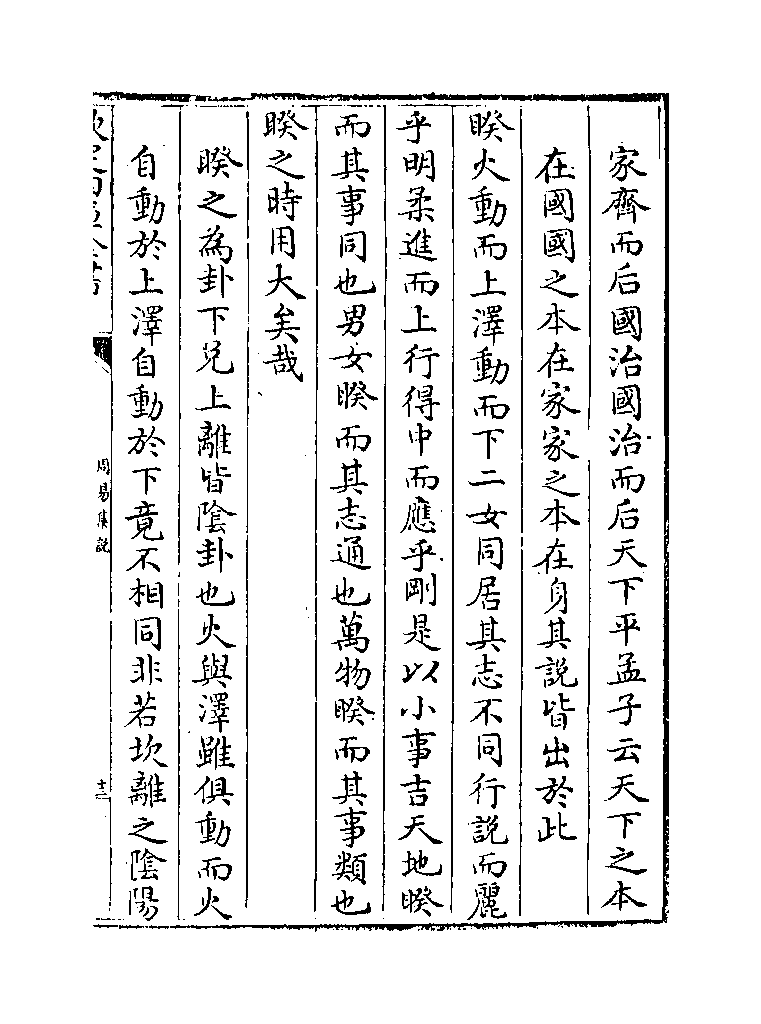 家齊而后國治國治而后天下平孟子云天下之本
在國國之本在家家之本在身其説皆出於此
睽火動而上澤動而下二女同居其志不同行説而麗
乎明柔進而上行得中而應乎剛是以小事吉天地睽
而其事同也男女睽而其志通也萬物睽而其事類也
睽之時用大矣哉
睽之為卦下兑上離皆陰卦也火與澤雖俱動而火
自動於上澤自動於下竟不相同非若坎離之陰陽
周易集説
十三